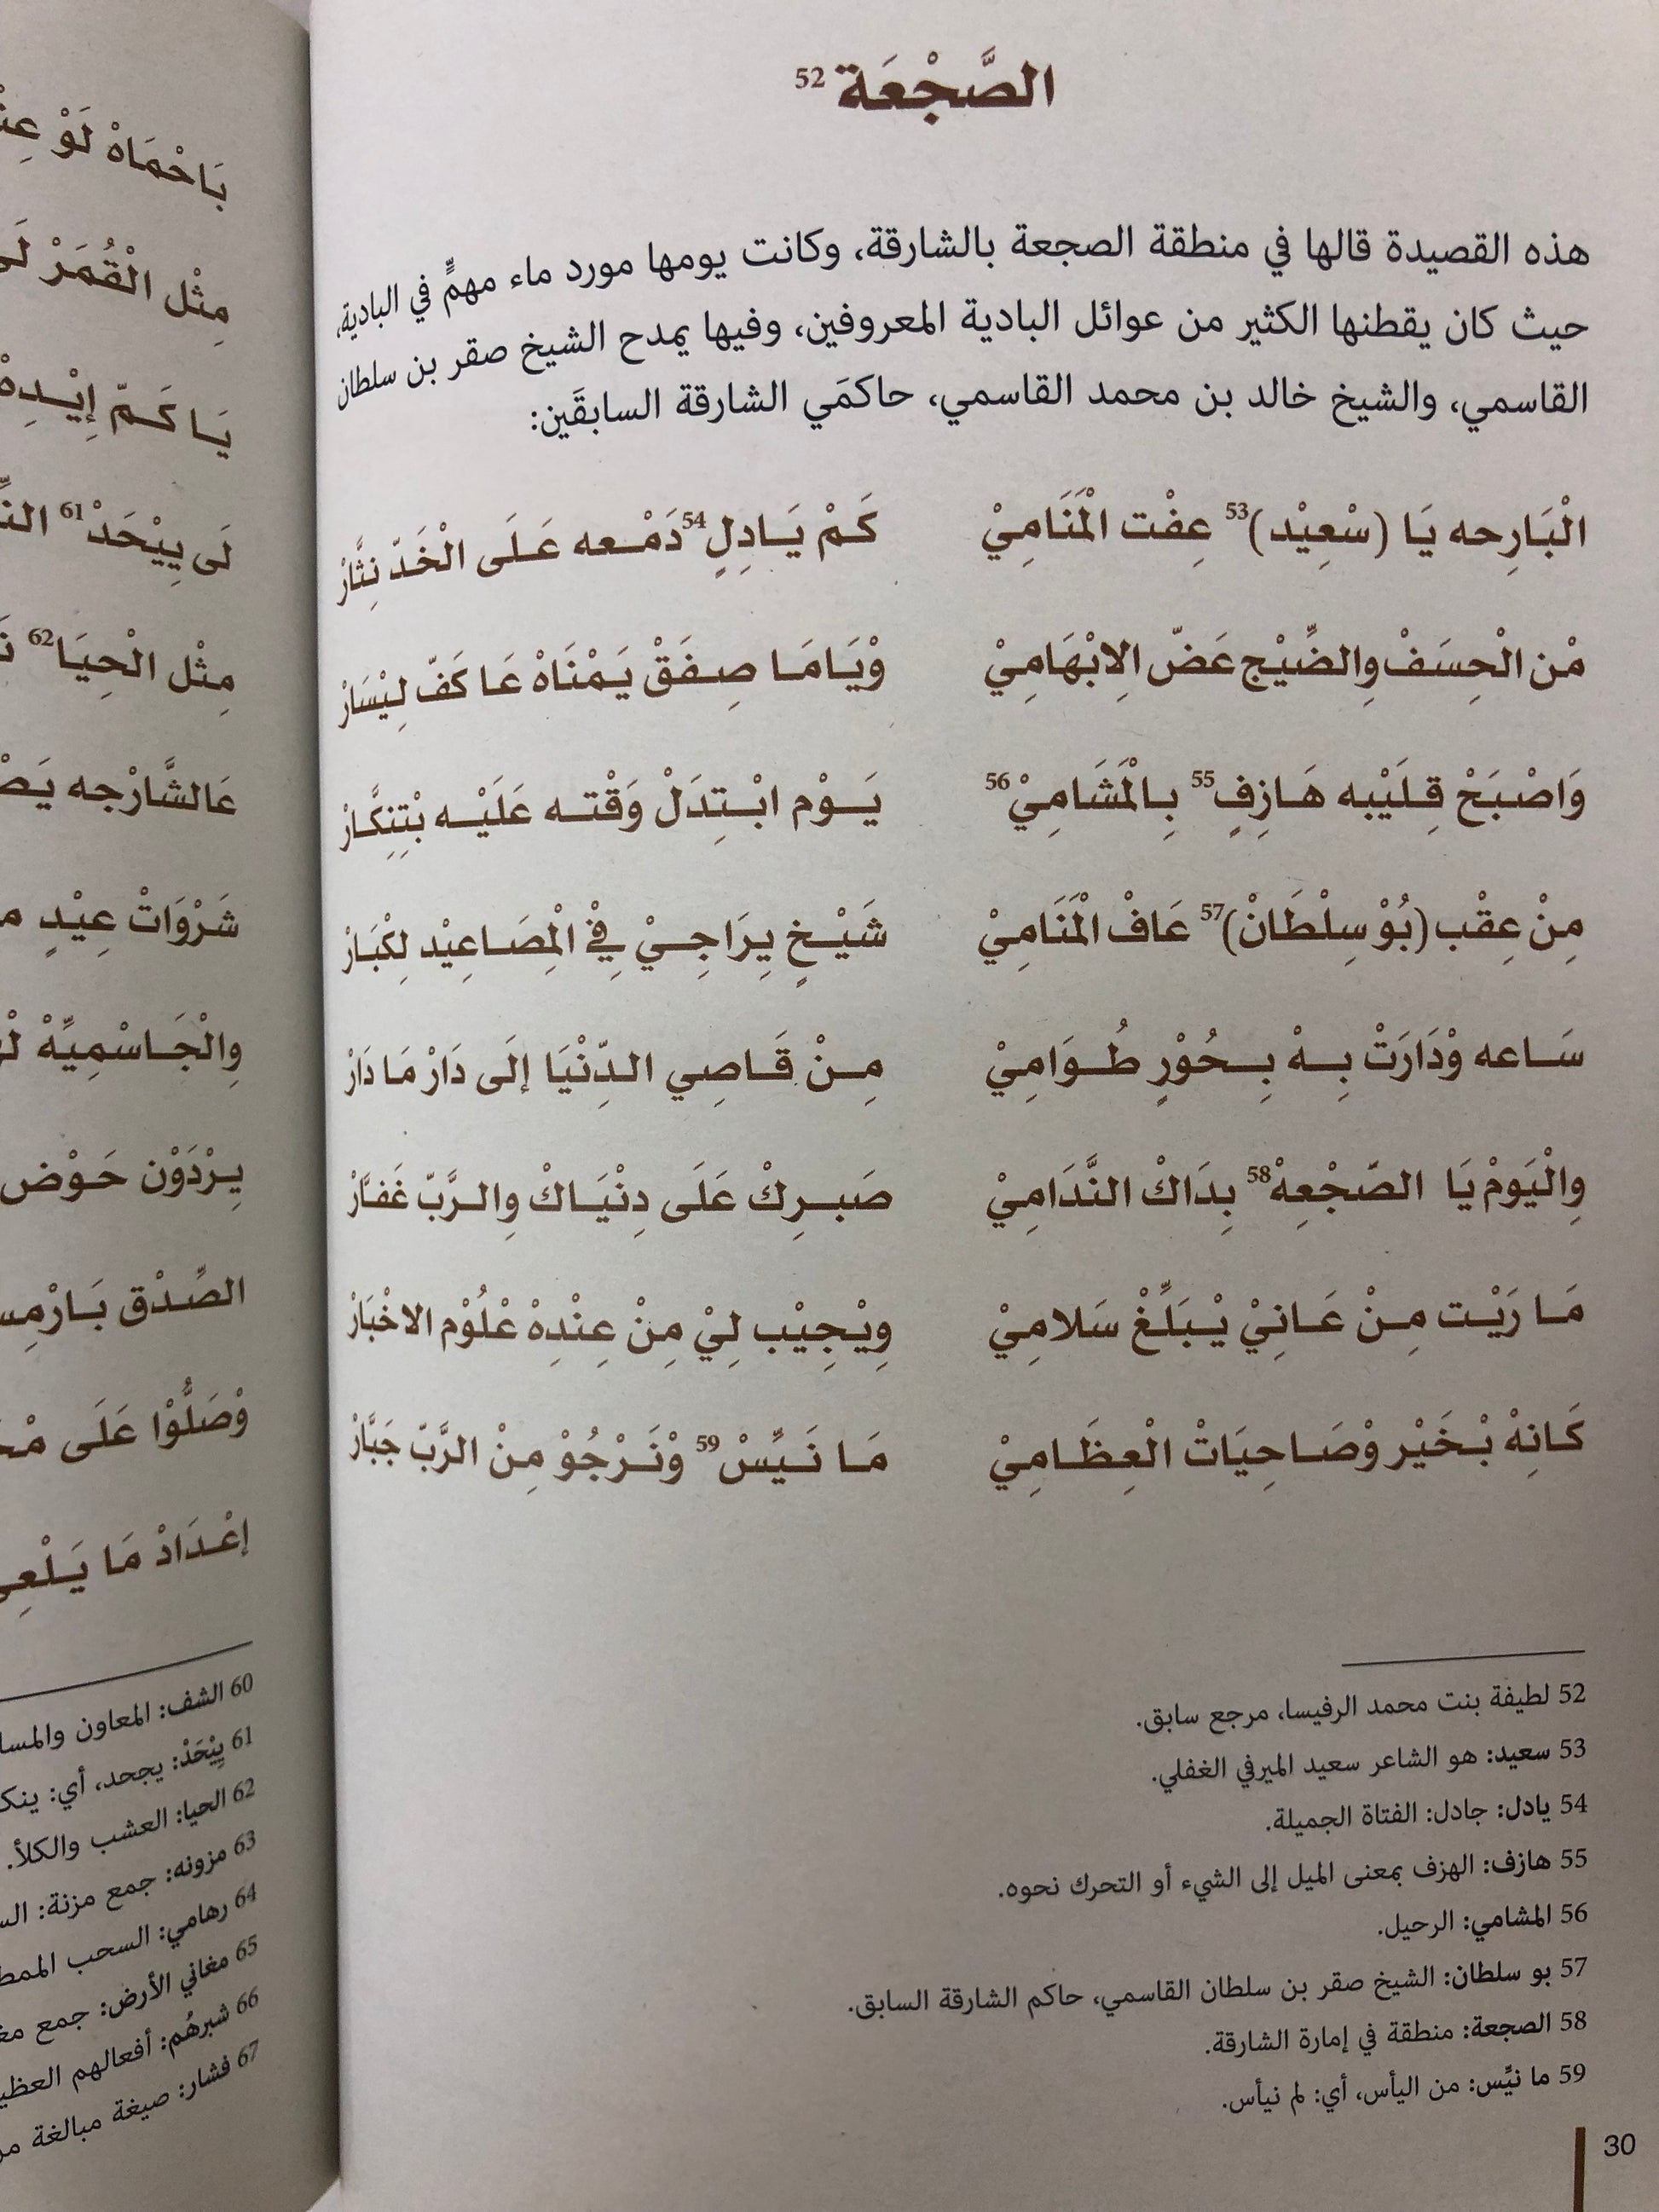 الصَّجْعَة 52
هذه القصيدة قالها في منطقة الصجعة بالشارقة، وكانت يومها مورد ماء مهمٍّ في البادية،
حيث كان يقطنها الكثير من عوائل البادية المعروفين، وفيها يمدح الشيخ صقر بن سلطان
القاسمي، والشيخ خالد بن محمد القاسمي، حاكمَي الشارقة السابقَين:
الْبَارِحه يَا (سْعِيْد)53 عِفْت الْمَنَامِيْ كَمْ يَادِلٍ54 دَمْعه عَلَى الْخَدّ نِثَّارْ
مْن الْحِسَفْ والضِّيْج عَضّ الِابْهَامِيْ وْيَامَا صِفَقْ يَمْنَاهْ عَا كَفّ لِيْسَارْ
وَاصْبَحْ قِلَيْبه هَازِفٍ55 بِالْمَشَامِيْ56 يَوْم ابْتِدَلْ وَقْته عَلَيْه بْتِنِكَّارْ
مِنْ عِقْب (بُوْ سِلْطَانْ)57 عَافْ الْمَنَامِيْ شَيْخٍ يِرَاجِيْ فِيْ الْمِصَاعِيْد لِكْبَارْ
سَاعه وْدَارَتْ بِهْ بِحُوْرٍ طُوَامِيْ مِنْ قَاصِي الدِّنْيَا إلَى دَارْ مَا دَارْ
وِالْيَوْمْ يَا الصّجْعِهْ58 بِدَاكْ النَّدَامِيْ صَبرِكْ عَلَى دِنْيَاكْ والرَّبّ غَفَّارْ
مَا رَيْت مِنْ عَانِيْ يْبَلِّغْ سَلامِيْ وِيْجِيْب لِيْ مِنْ عِنْدِهْ عْلُوْم الاخْبَارْ
كَانِهْ بْخَيْر وْصَاحِيَاتْ الْعِظَامِيْ مَا نَيِّسْ59 وْنَرْجُوْ مِنْ الرَّبّ جَبَّارْ
52 لطيفة بنت محمد الرفيسا، مرجع سابق.
53 سعيد: هو الشاعر سعيد الميرفي الغفلي.
54 يادل: جادل: الفتاة الجميلة.
55 هازف: الهزف بمعنى الميل إلى الشيء أو التحرك نحوه.
56 المشامي: الرحيل.
57 بو سلطان: الشيخ صقر بن سلطان القاسمي، حاكم الشارقة السابق.
58 الصجعة: منطقة في إمارة الشارقة.
59 ما نيِّس: من اليأس، أي: لم نيأس.
30
بَاحْمَاهْ لَوْ
مِثْل الْقُمَرْ
يَا كَمّ إيْدِهْ
لَى يِيْحَدْ61
مِثْل الْحِيَا62
عَالشَّارْجه
شَرْوَاتْ عِيْدٍ
والْجَاسْمِيِّهْ
يِرْدَوْن حَوْض
الصِّدْق
وْصَلُّوْا عَلَى
إعْدَادْ مَا
60 الشف: المعاون
61 يِيْحَدْ: يجحد، أي:
62 الحيا: العشب والكلأ.
63 مزونه: جمع مزنة:
64 رهامي: السحب
65 مغاني الأرض: جمع
66 شبرهُم: أفعالهم
67 فشار: صيغة مبالغة